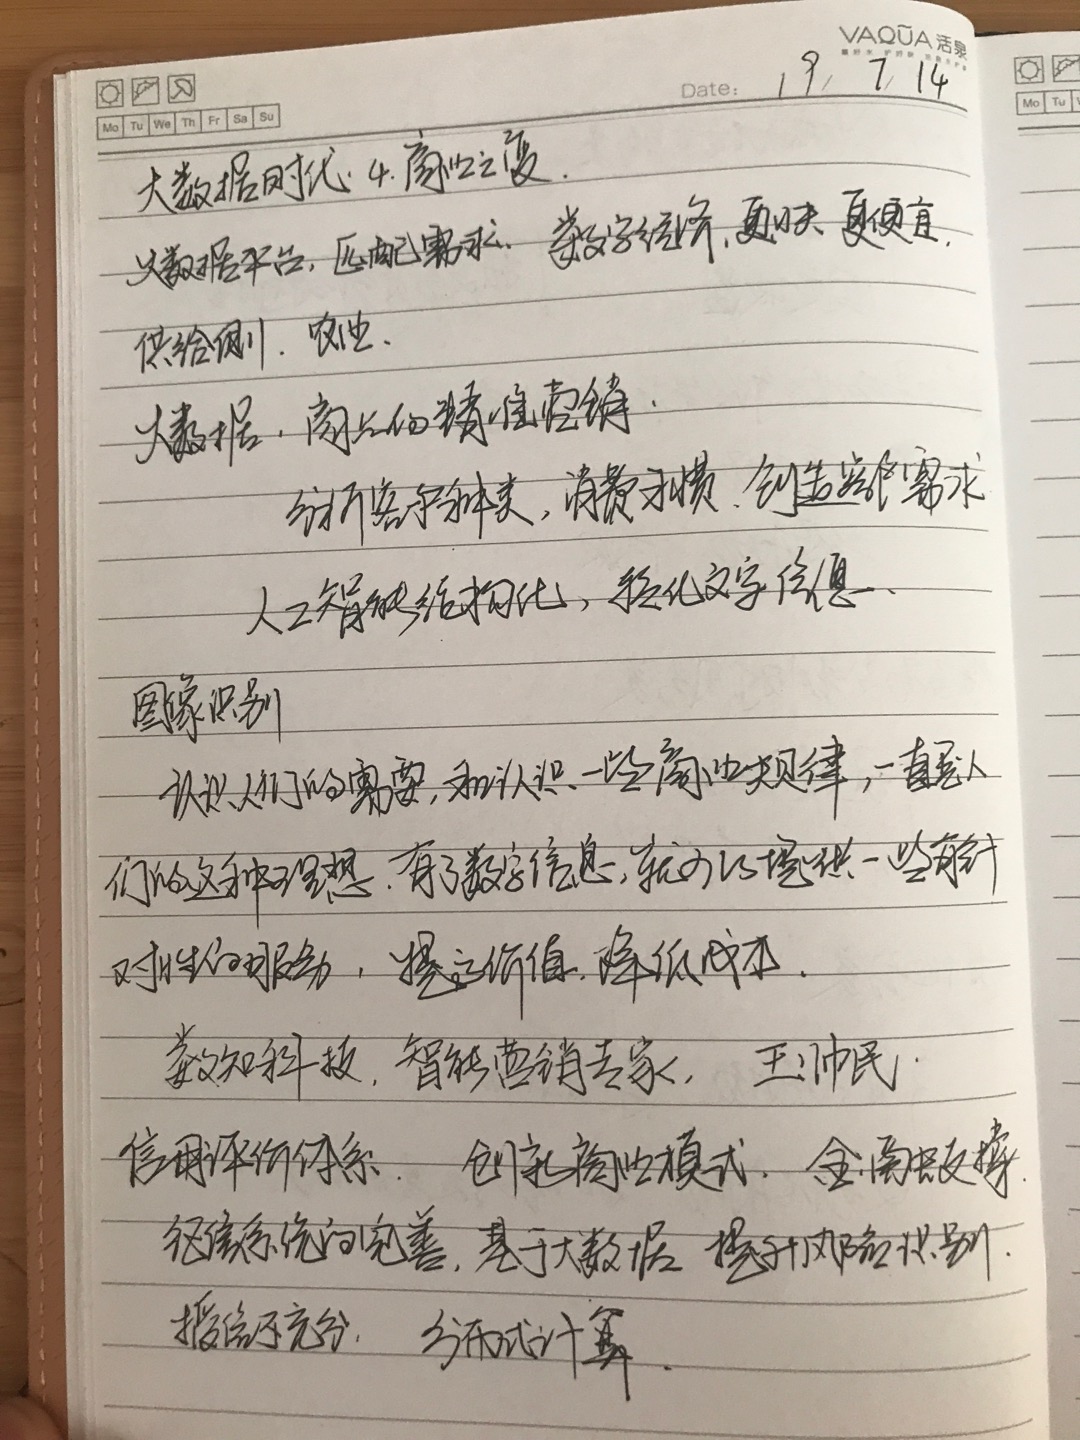 VAQŪA 活泉
Date: 19/ 7/ 14
Mo Tu We Th Fr Sa Su
Mo Tu
大数据时代. 4. 商业之变.
大数据平台, 匹配需求. 数字经济, 更快 更便宜.
供给侧. 农业.
大数据. 商品的精准营销.
分析客户种类, 消费习惯. 创造客户需求
人工智能结构化, 转化文字信息.
图像识别
认识人们的需要, 和认识一些商业规律, 一直是人
们的这种理想. 有了数字信息, 就可以提供一些有针
对性的服务, 提高价值. 降低成本.
数知科技. 智能营销专家. 王帅民.
信用评价体系. 创新商业模式. 金融支撑.
征信系统的完善, 基于大数据 提升风险识别.
授信不充分. 分布式计算.